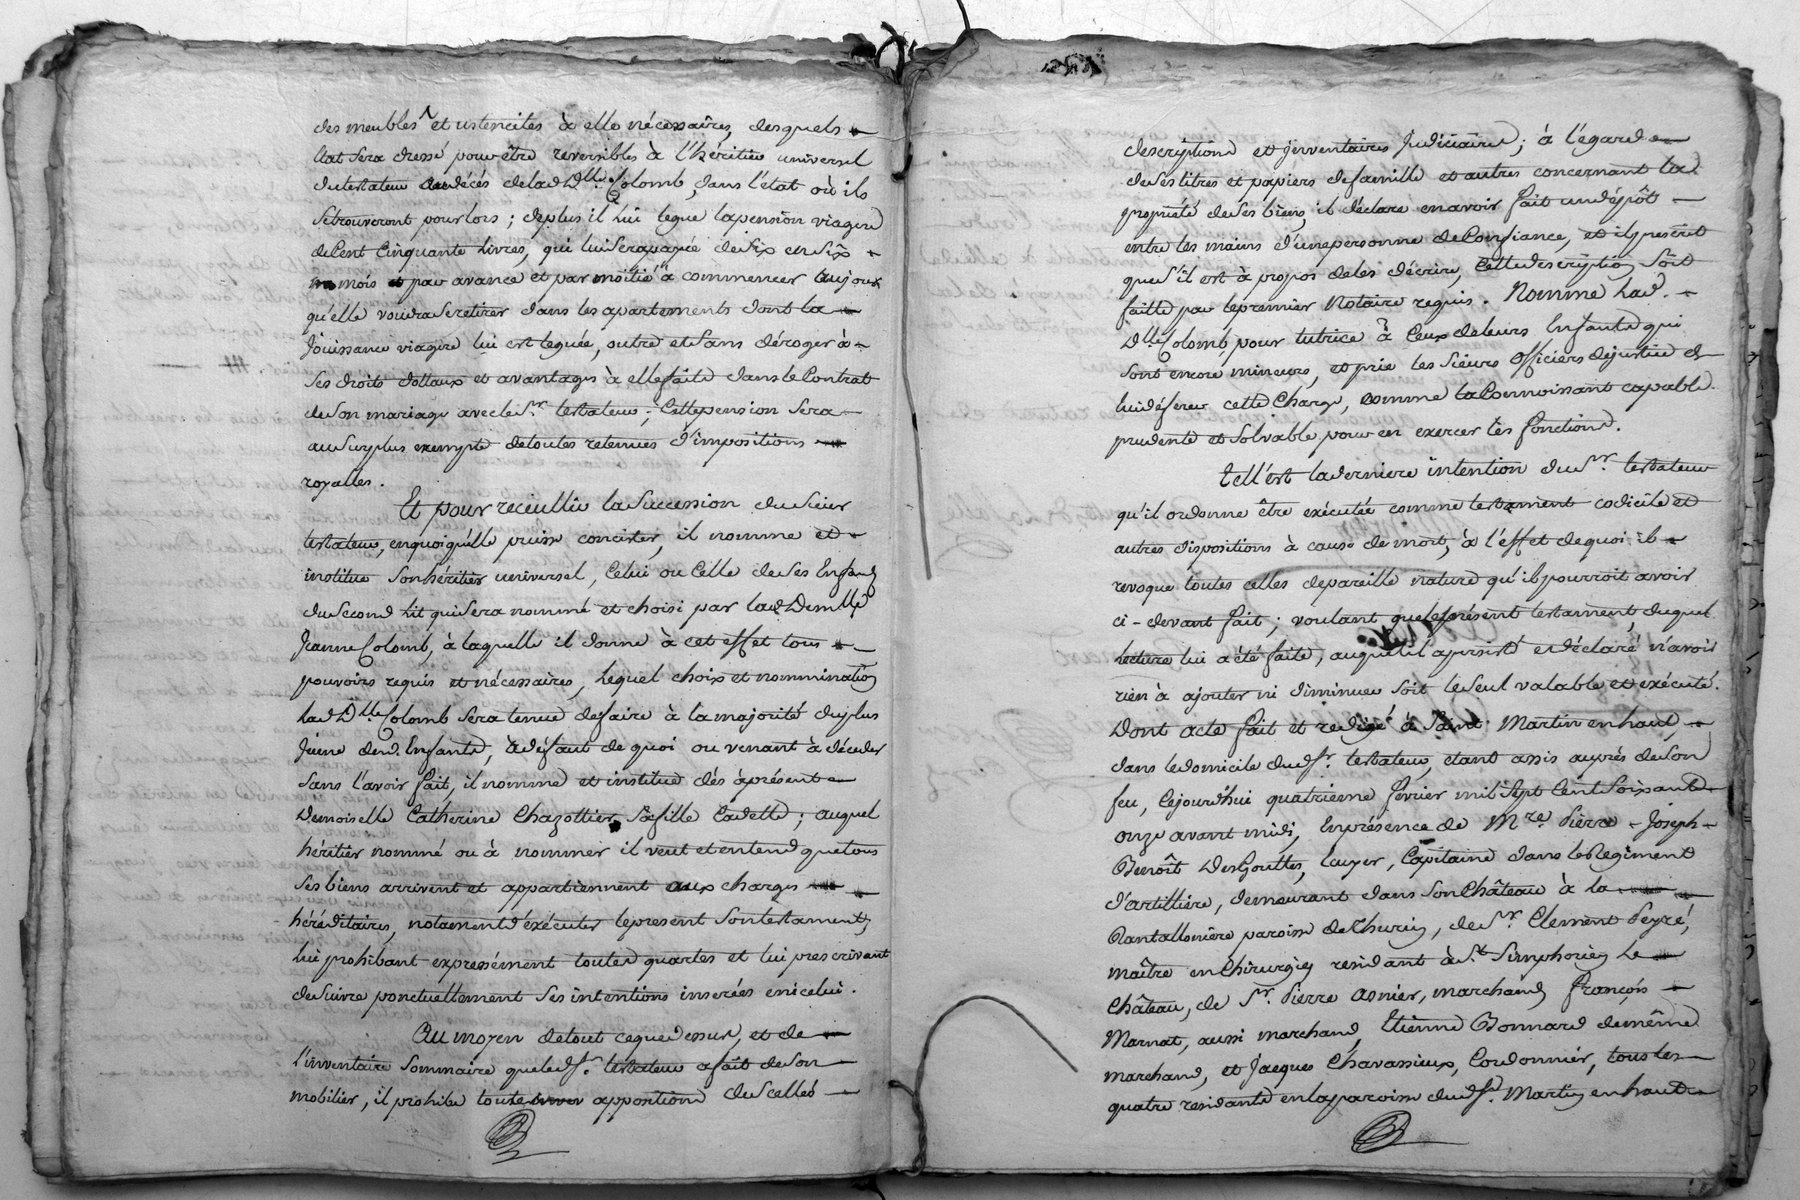 des meubles et ustenciles à elle nécessaires, desquels
Etat sera dressé pour être reversibles à l'héritier universel
du testateur au décés de lad. Dlle. Colomb, dans l'état où ils
se trouveront pour lors ; deplus il lui legue la pension viagere
de Cent Cinquante livres, qui lui sera payée de six en six
mois par avance et par moitié à commencer aujour
qu'elle voudra se retirer dans les apartements dont la
Jouissance viagere lui est leguée, outre et sans déroger à
ses droits dottaux et avantages à elle faits dans le Contrat
de son mariage avec le Sr. testateur ; Cette pension sera
au surplus exempte de toutes retenues d'impositions
royalles.
Et pour recéuillir la succession du sieur
testateur, en quoi qu'elle puisse concister, il nomme et
institue son héritier universel, Celui ou Celle de ses Enfans
du second Lit qui sera nommé et choisi par lad. Demlle
Jeanne Colomb, à laquelle il donne à cet effet tous
pouvoirs requis et nécessaires, Lequel choix et nommination
Lad. Dlle Colomb sera tenue de faire à la majorité du plus
Jeune desd. Enfants, à défaut de quoi ou venant à décéder
sans l'avoir fait, il nomme et institue dés àprésent
Demoiselle Catherine Chazottier, sa fille Cadette ; auquel
héritier nommé ou à nommer il veut et entend que tous
ses biens arrivent et appartiennent aux charges
héréditaires, notament d'éxécuter le present son testament,
Lui prohibant expressément toutes quartes et lui prescrivant
de suivre ponctuellement ses intentions inserées en icelui.
Au moyen de tout ce que dessus, et de
l'inventaire sommaire que led. Sr. testateur a fait de son
mobilier, il prohibe toute apposition de scellés
descriptions et inventaires Judiciaires ; à l'égard
de ses titres et papiers de famille et autres concernant la
propriété de ses biens, il déclare en avoir fait un dépôt
entre les mains d'une personne de Confiance, et il prescrit
que s'il est à propos de les décrire, Cette description soit
faitte par le premier Notaire requis. Nomme Lad.
Dlle Colomb, pour tutrice à Ceux de leurs Enfants qui
sont encore mineurs, et prie les sieurs officiers de justice de
lui déferer cette Charge, comme la Connoissant capable
prudente et solvable pour en exercer les fonctions.
Tell'est la derniere intention du Sr. testateur
qu'il ordonne être exécutée comme testament codicile et
autres dispositions à cause de mort, à l'effet de quoi il
revoque toutes celles de pareille nature qu'il pourroit avoir
ci-devant fait ; voulant que le présent testament, duquel
lecture lui a été faite, auquel il a persisté et déclaré n'avoir
rien à ajouter ni diminuer soit le seul valable et exécuté.
Dont acte fait et redigé à Saint Martin en haut,
dans le domicile dud. Sr. testateur, etant assis auprés de son
feu, Cejourd'hui quatrieme février mil sept Cent soixante
onze avant midi, En présence de Mre. Pierre-Joseph-
Benoît DesGouttes, Ecuyer, Capitaine dans le Regiment
d'artillerie, demeurant dans son Château à la
Rontallonière paroisse de Thurins, de Sr. Clement Peyré,
maître en Chirurgie residant à St. Simphorien le
Château, de Sr. Pierre Asnier, marchand, françois
Marnat, aussi marchand, Etienne Bonnard de même
marchand, et Jacques Chavassieux, Cordonnier, tous les
quatre residants en la paroisse dud. St. Martin en haut